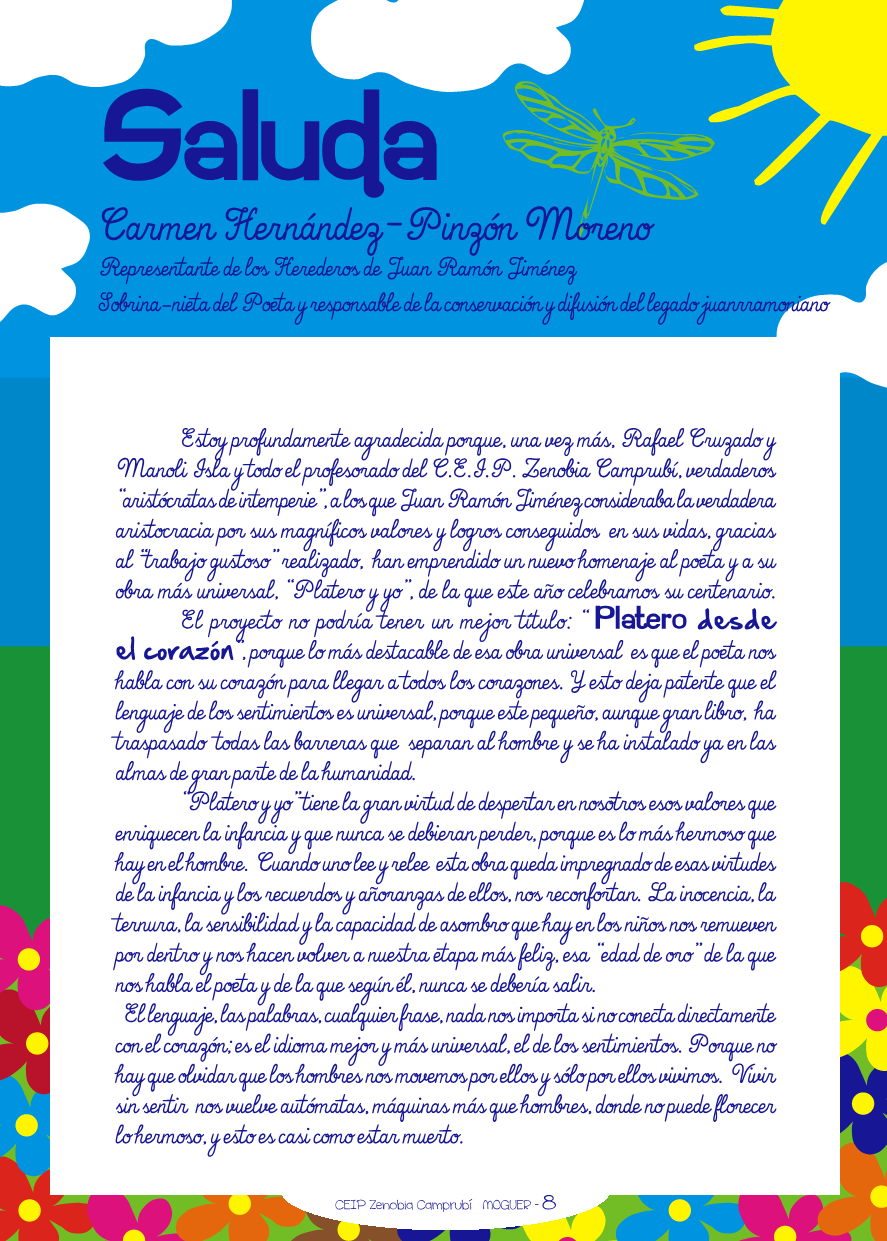 Saluda
Carmen Hernández-Pinzón Moreno
Representante de los Herederos de Juan Ramón Jiménez
Sobrina-nieta del Poeta y responsable de la conservación y difusión del legado juanrramoniano
Estoy profundamente agradecida porque, una vez más, Rafael Cruzado y
Manoli Isla y todo el profesorado del C.E.I.P. Zenobia Camprubí, verdaderos
"aristócratas de intemperie", a los que Juan Ramón Jiménez consideraba la verdadera
aristocracia por sus magníficos valores y logros conseguidos en sus vidas, gracias
al "trabajo gustoso" realizado, han emprendido un nuevo homenaje al poeta y a su
obra más universal, "Platero y yo", de la que este año celebramos su centenario.
El proyecto no podría tener un mejor título: "Platero desde
el corazón", porque lo más destacable de esa obra universal es que el poeta nos
habla con su corazón para llegar a todos los corazones. Y esto deja patente que el
lenguaje de los sentimientos es universal, porque este pequeño, aunque gran libro, ha
traspasado todas las barreras que separan al hombre y se ha instalado ya en las
almas de gran parte de la humanidad.
"Platero y yo" tiene la gran virtud de despertar en nosotros esos valores que
enriquecen la infancia y que nunca se debieran perder, porque es lo más hermoso que
hay en el hombre. Cuando uno lee y relee esta obra queda impregnado de esas virtudes
de la infancia y los recuerdos y añoranzas de ellos, nos reconfortan. La inocencia, la
ternura, la sensibilidad y la capacidad de asombro que hay en los niños nos remueven
por dentro y nos hacen volver a nuestra etapa más feliz, esa "edad de oro" de la que
nos habla el poeta y de la que según él, nunca se debería salir.
El lenguaje, las palabras, cualquier frase, nada nos importa si no conecta directamente
con el corazón; es el idioma mejor y más universal, el de los sentimientos. Porque no
hay que olvidar que los hombres nos movemos por ellos y sólo por ellos vivimos. Vivir
sin sentir nos vuelve autómatas, máquinas más que hombres, donde no puede florecer
lo hermoso, y esto es casi como estar muerto.
CEIP Zenobia Camprubí MOGUER - 8